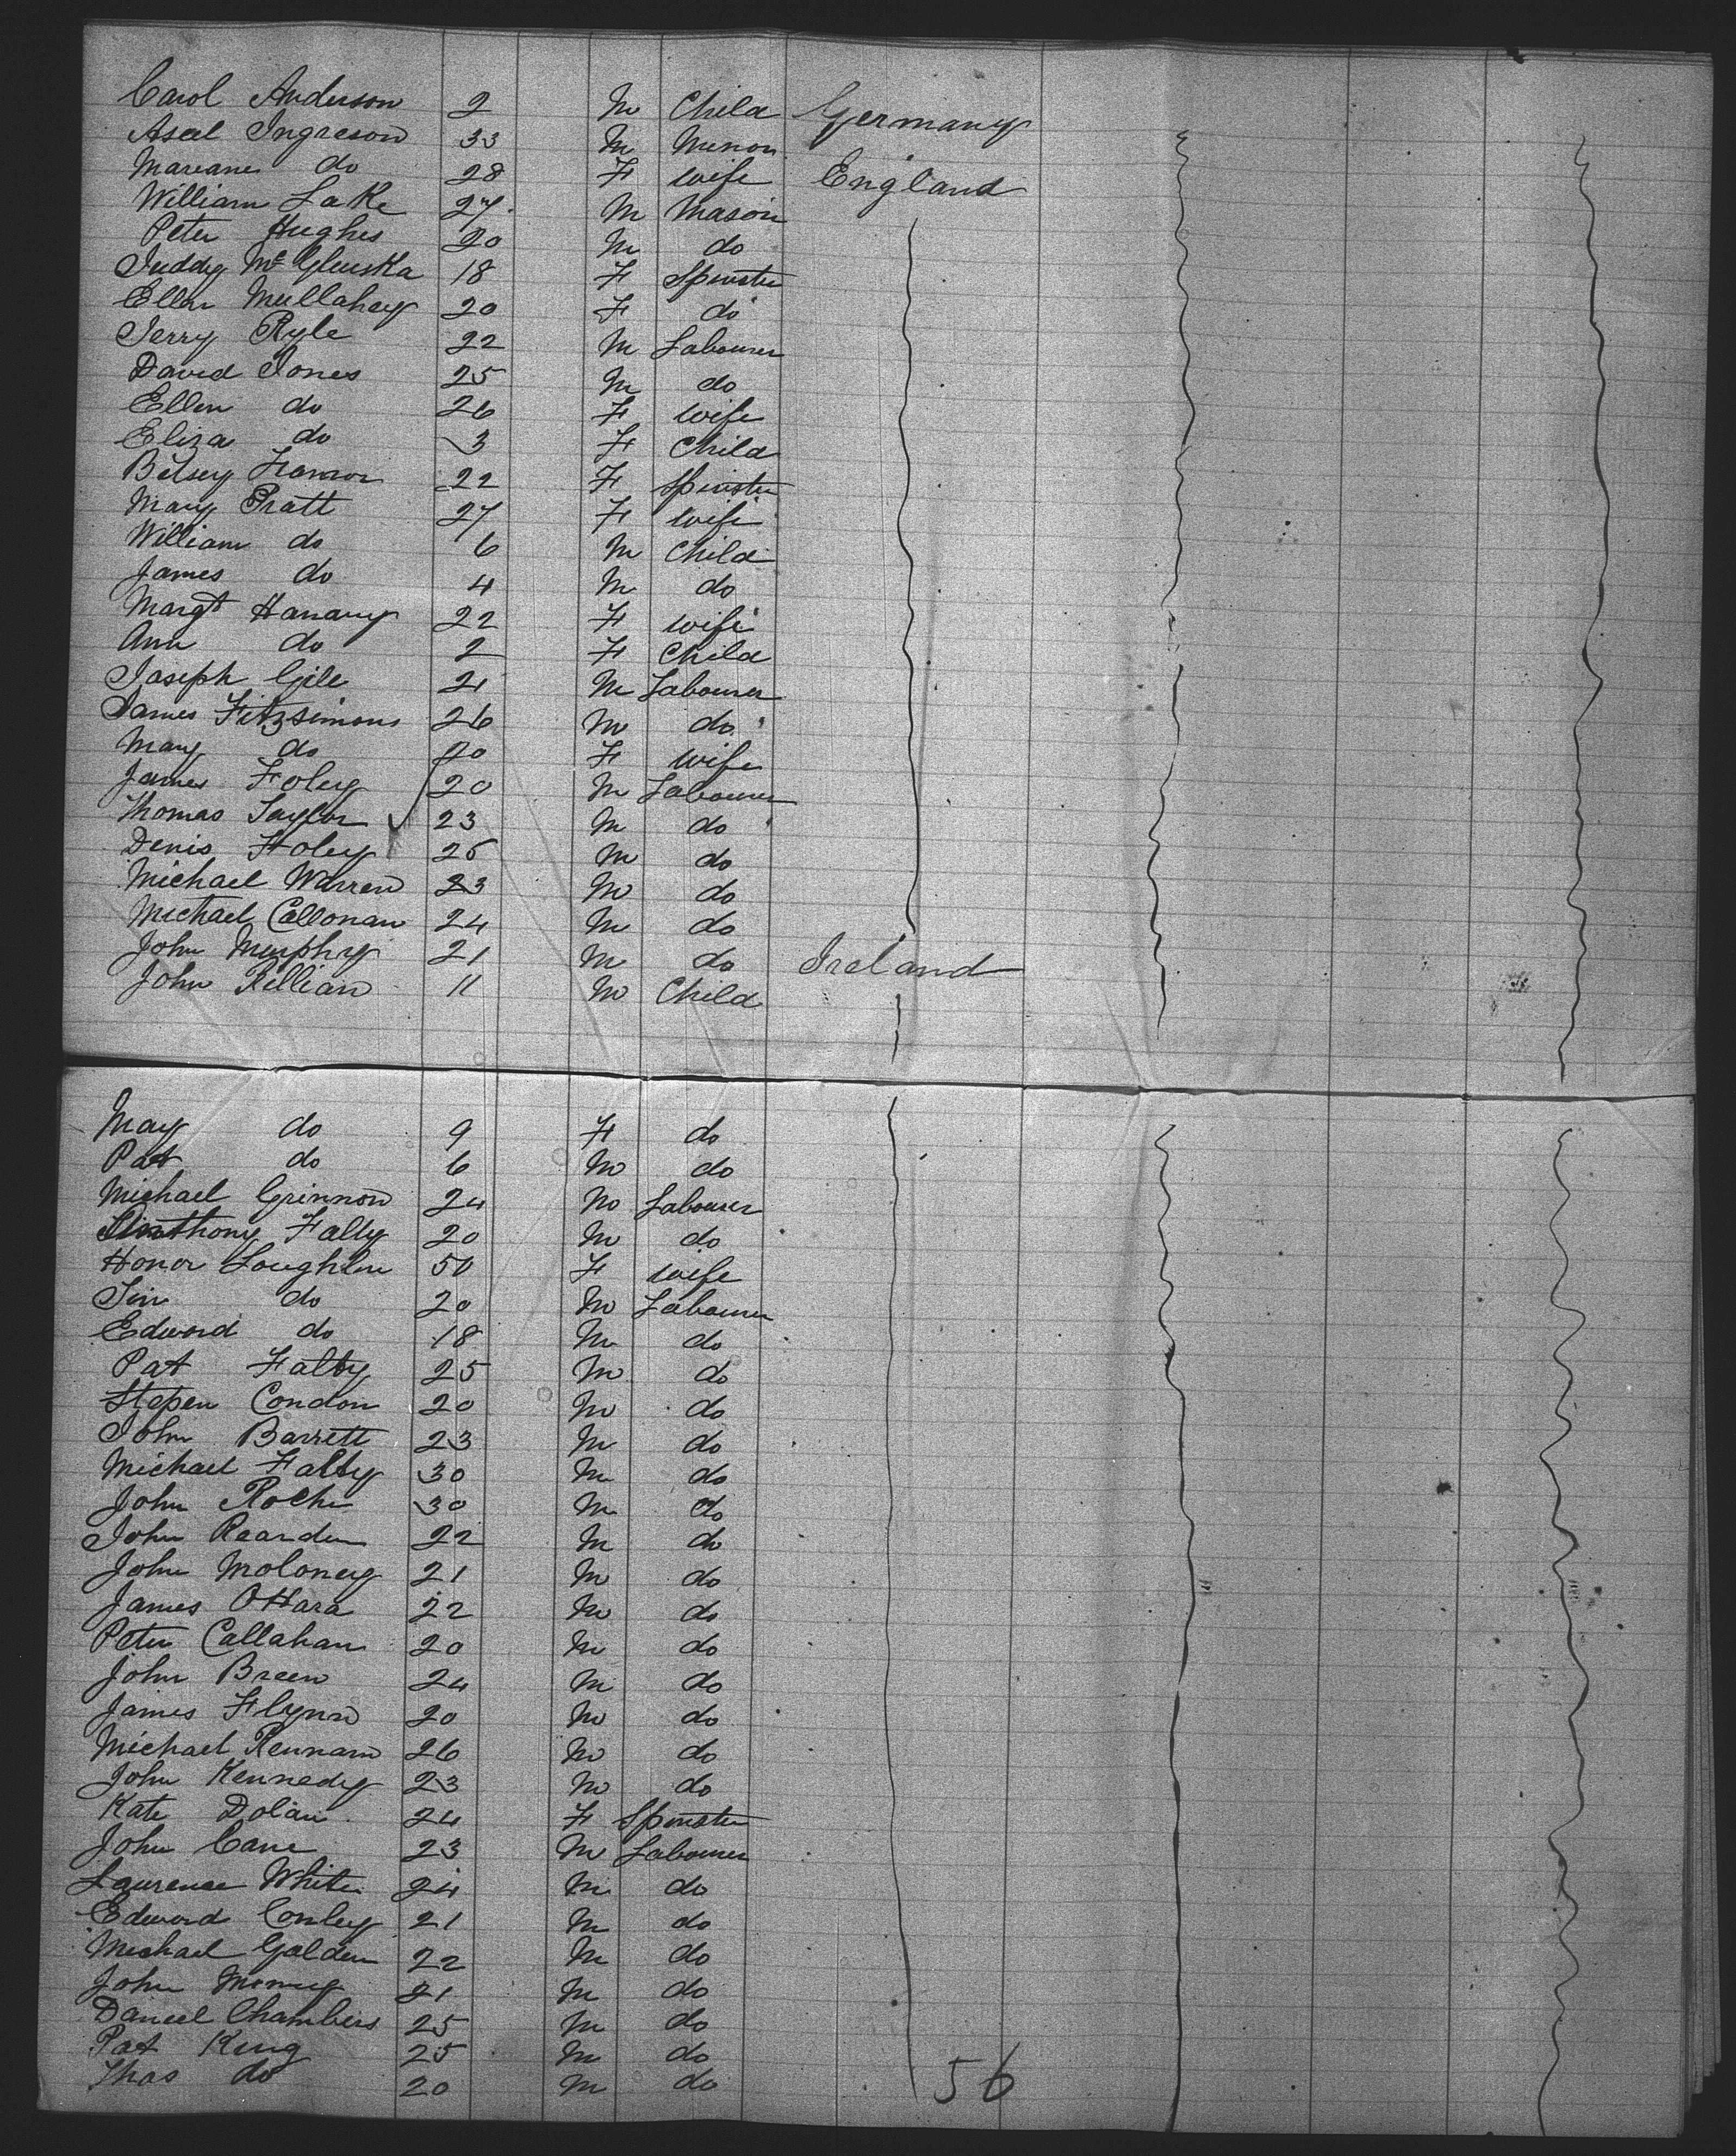 Carol Anderson 2 M Child Germany
Axel Ingreson 33 M Minor
Mariane do 28 F wife England
William Lake 27 M Mason
Peter Hughes 20 M do
Juddy Mc 18 F Spinster
Ellen Mullahey 20 F do
Jerry Ryle 22 M Labourer
David Jones 25 M do
Ellen do 26 F wife
Eliza do 3 F Child
Betsey 22 F Spinster
Mary Pratt 27 F wife
William do 6 M Child
James do 4 M do
Margt Hanavy 22 F wife
Ann do 2 F Child
Joseph Gile 21 M Labourer
James Fitzsimons 26 M do
Mary do 20 F wife
James Foley 20 M Labourer
Thomas Taylor 23 M do
Denis Foley 25 M do
Michael Warren 23 M do
Michael Callonan 24 M do
John Murphy 21 M do Ireland
John Killian 11 M Child
May do 9 F do
Pat do 6 M do
Michael Grinnon 24 M Labourer
Anthony Falty 20 M do
Honor Loughlin 50 F wife
Tim do 20 M Labourer
Edward do 18 M do
Pat Falty 25 M do
Stepen Condon 20 M do
John Barrett 23 M do
Michael Falty 30 M do
John Roche 30 M do
John Rearden 22 M do
John Moloney 21 M do
James OHara 22 M do
Peter Callahan 20 M do
John Breen 24 M do
James Flynn 20 M do
Michael Rennan 26 M do
John Kennedy 23 M do
Kate Dolan 24 F Spinster
John Cane 23 M Labourer
Laurence White 24 M do
Edward Conley 21 M do
Michael Golden 22 M do
John 21 M do
Daneel Chambers 25 M do
Pat King 25 M do
Thos do 20 M do
56